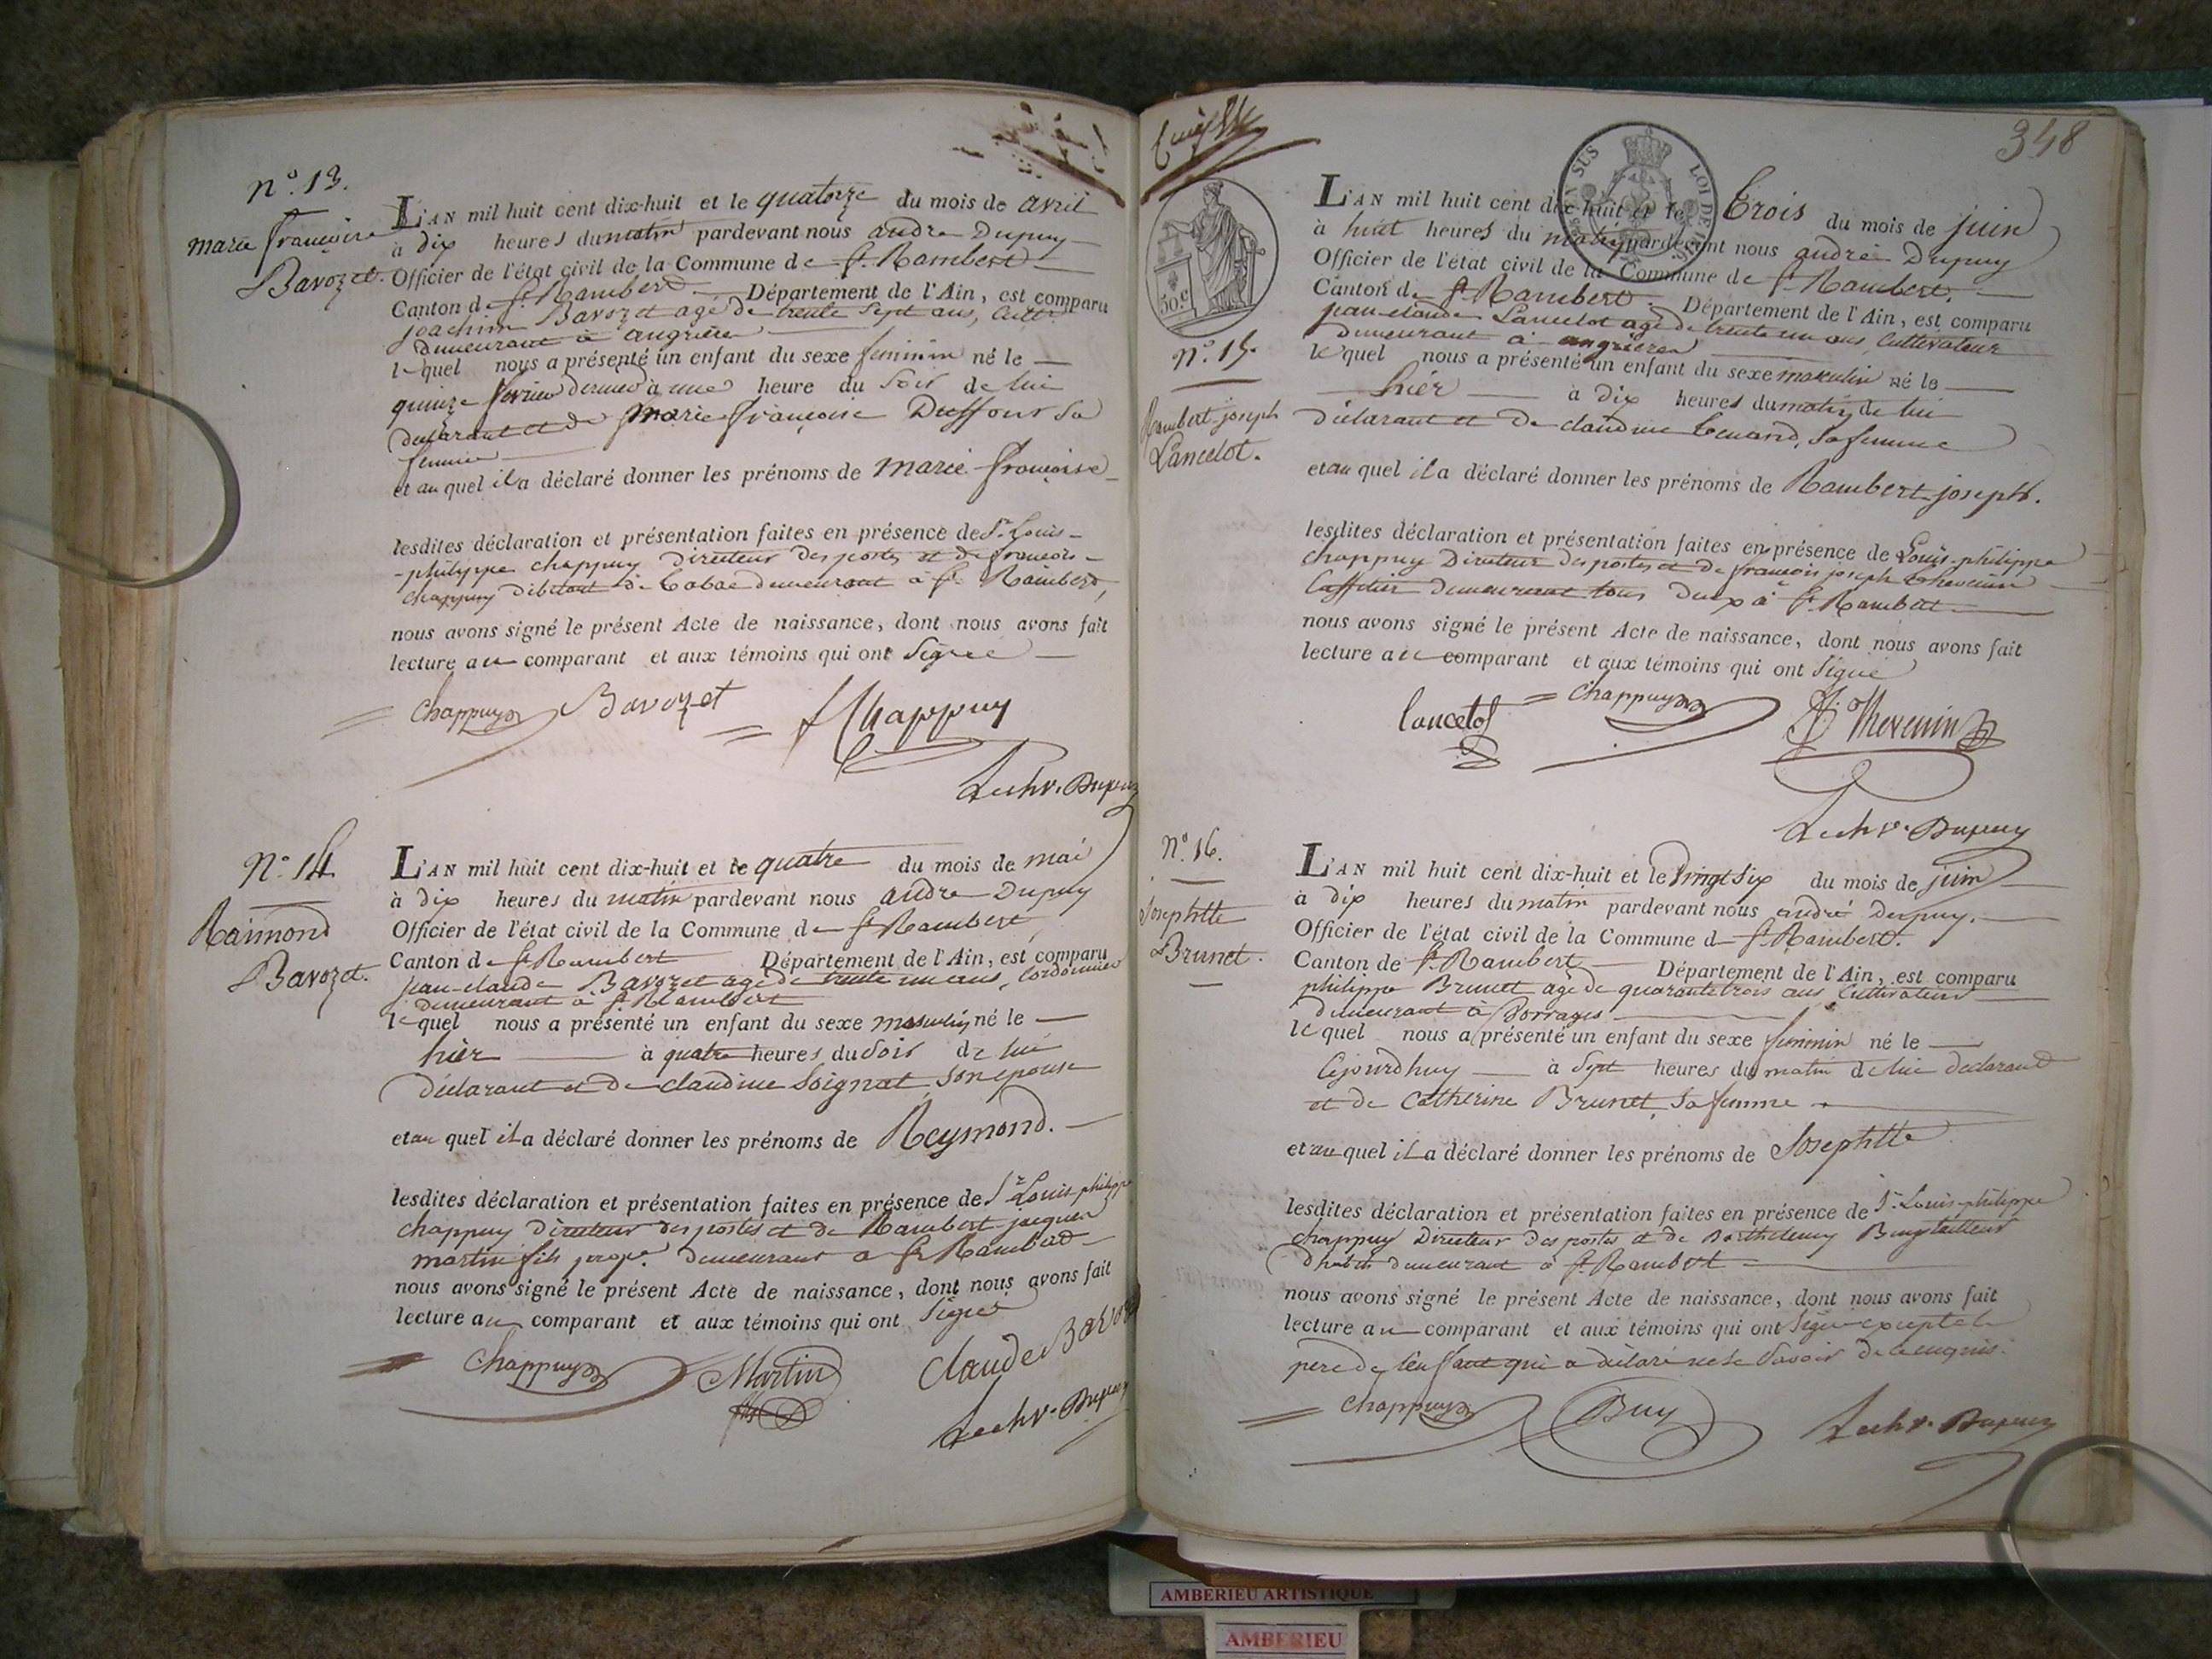 n.º 13.
marie françoise
Bavozet.
L'AN mil huit cent dix-huit et le quatorze du mois de avril
à dix heures du matin pardevant nous andre Dupuy
Officier de l'état civil de la Commune de St. Rambert
Canton de St. Rambert Département de l'Ain, est comparu
joachim Bavozet agé de trente sept ans, cultr.
demeurant à angrieres
lequel nous a présenté un enfant du sexe feminin né le
quinze fevrier dernier à une heure du soir de lui
declarant et de marie françoise Duffour sa
femme
et au quel il a déclaré donner les prénoms de marie françoise
lesdites déclaration et présentation faites en présence de Sr. Louis-
-philippe chappuy directeur des postes et de françois-
chappuy débitant de tabac demeurant à St. Rambert,
nous avons signé le présent Acte de naissance, dont nous avons fait
lecture au comparant et aux témoins qui ont signé
Chappuy Bavozet Chappuy
Dupuy
n.º 14.
Raimond
Bavozet.
L'AN mil huit cent dix-huit et le quatre du mois de mai
à dix heures du matin pardevant nous andre Dupuy
Officier de l'état civil de la Commune de St. Rambert
Canton de St. Rambert Département de l'Ain, est comparu
jean-claude Bavozet agé de trente un ans, cordonnier
demeurant à St. Rambert
lequel nous a présenté un enfant du sexe masculin né le
hier à quatre heures du soir de lui
déclarant et de claudine Soignat, son epouse
et au quel il a déclaré donner les prénoms de Reymond.
lesdites déclaration et présentation faites en présence de Sr. Louis-philippe
chappuy directeur des postes et de Rambert-jacques
martin fils prope. demeurant a St. Rambert
nous avons signé le présent Acte de naissance, dont nous avons fait
lecture au comparant et aux témoins qui ont signé
Chappuy Martin Claude
fils
Dupuy
348
LOI DE
30 c
n.º 15.
Rambert-joseph
Lancelot.
L'AN mil huit cent dix-huit et le Trois du mois de juin
à huit heures du matin pardevant nous andré Dupuy
Officier de l'état civil de la Commune de St. Rambert.
Canton de St. Rambert. Département de l'Ain, est comparu
jean-claude Lancelot agé de trente un ans, cultivateur
demeurant à angrieres
lequel nous a présenté un enfant du sexe masculin né le
hier à dix heures du matin de lui
déclarant et de claudine sa femme
et au quel il a déclaré donner les prénoms de Rambert-joseph.
lesdites déclaration et présentation faites en présence de Louis-philippe
chappuy Directeur des postes et de françois joseph thevenin
caffetier demeurant tous deux à St. Rambert
nous avons signé le présent Acte de naissance, dont nous avons fait
lecture au comparant et aux témoins qui ont signé
lancelot Chappuy Thevenin
Dupuy
n.º 16.
Josephtte
Brunet.
L'AN mil huit cent dix-huit et le vingt six du mois de juin
à dix heures du matin pardevant nous andré Dupuy.
Officier de l'état civil de la Commune de St. Rambert.
Canton de St. Rambert Département de l'Ain, est comparu
philippe Brunet agé de quarante trois ans cultivateur
demeurant à Dorrages
lequel nous a présenté un enfant du sexe feminin né le
cejourdhuy à sept heures du matin de lui declarant
et de Catherine Brunet, sa femme
et au quel il a déclaré donner les prénoms de Josephtte
lesdites déclaration et présentation faites en présence de Sr. Louis-philippe
chappuy Directeur des postes et de Barthelemy Buy tailleur
d'habits demeurant à St. Rambert
nous avons signé le présent Acte de naissance, dont nous avons fait
lecture au comparant et aux témoins qui ont signé excepté le
pere de l'enfant qui a déclaré ne le savoir de ce enquis.
Chappuy Buy Dupuy
AMBERIEU ARTISTIQUE
AMBERIEU